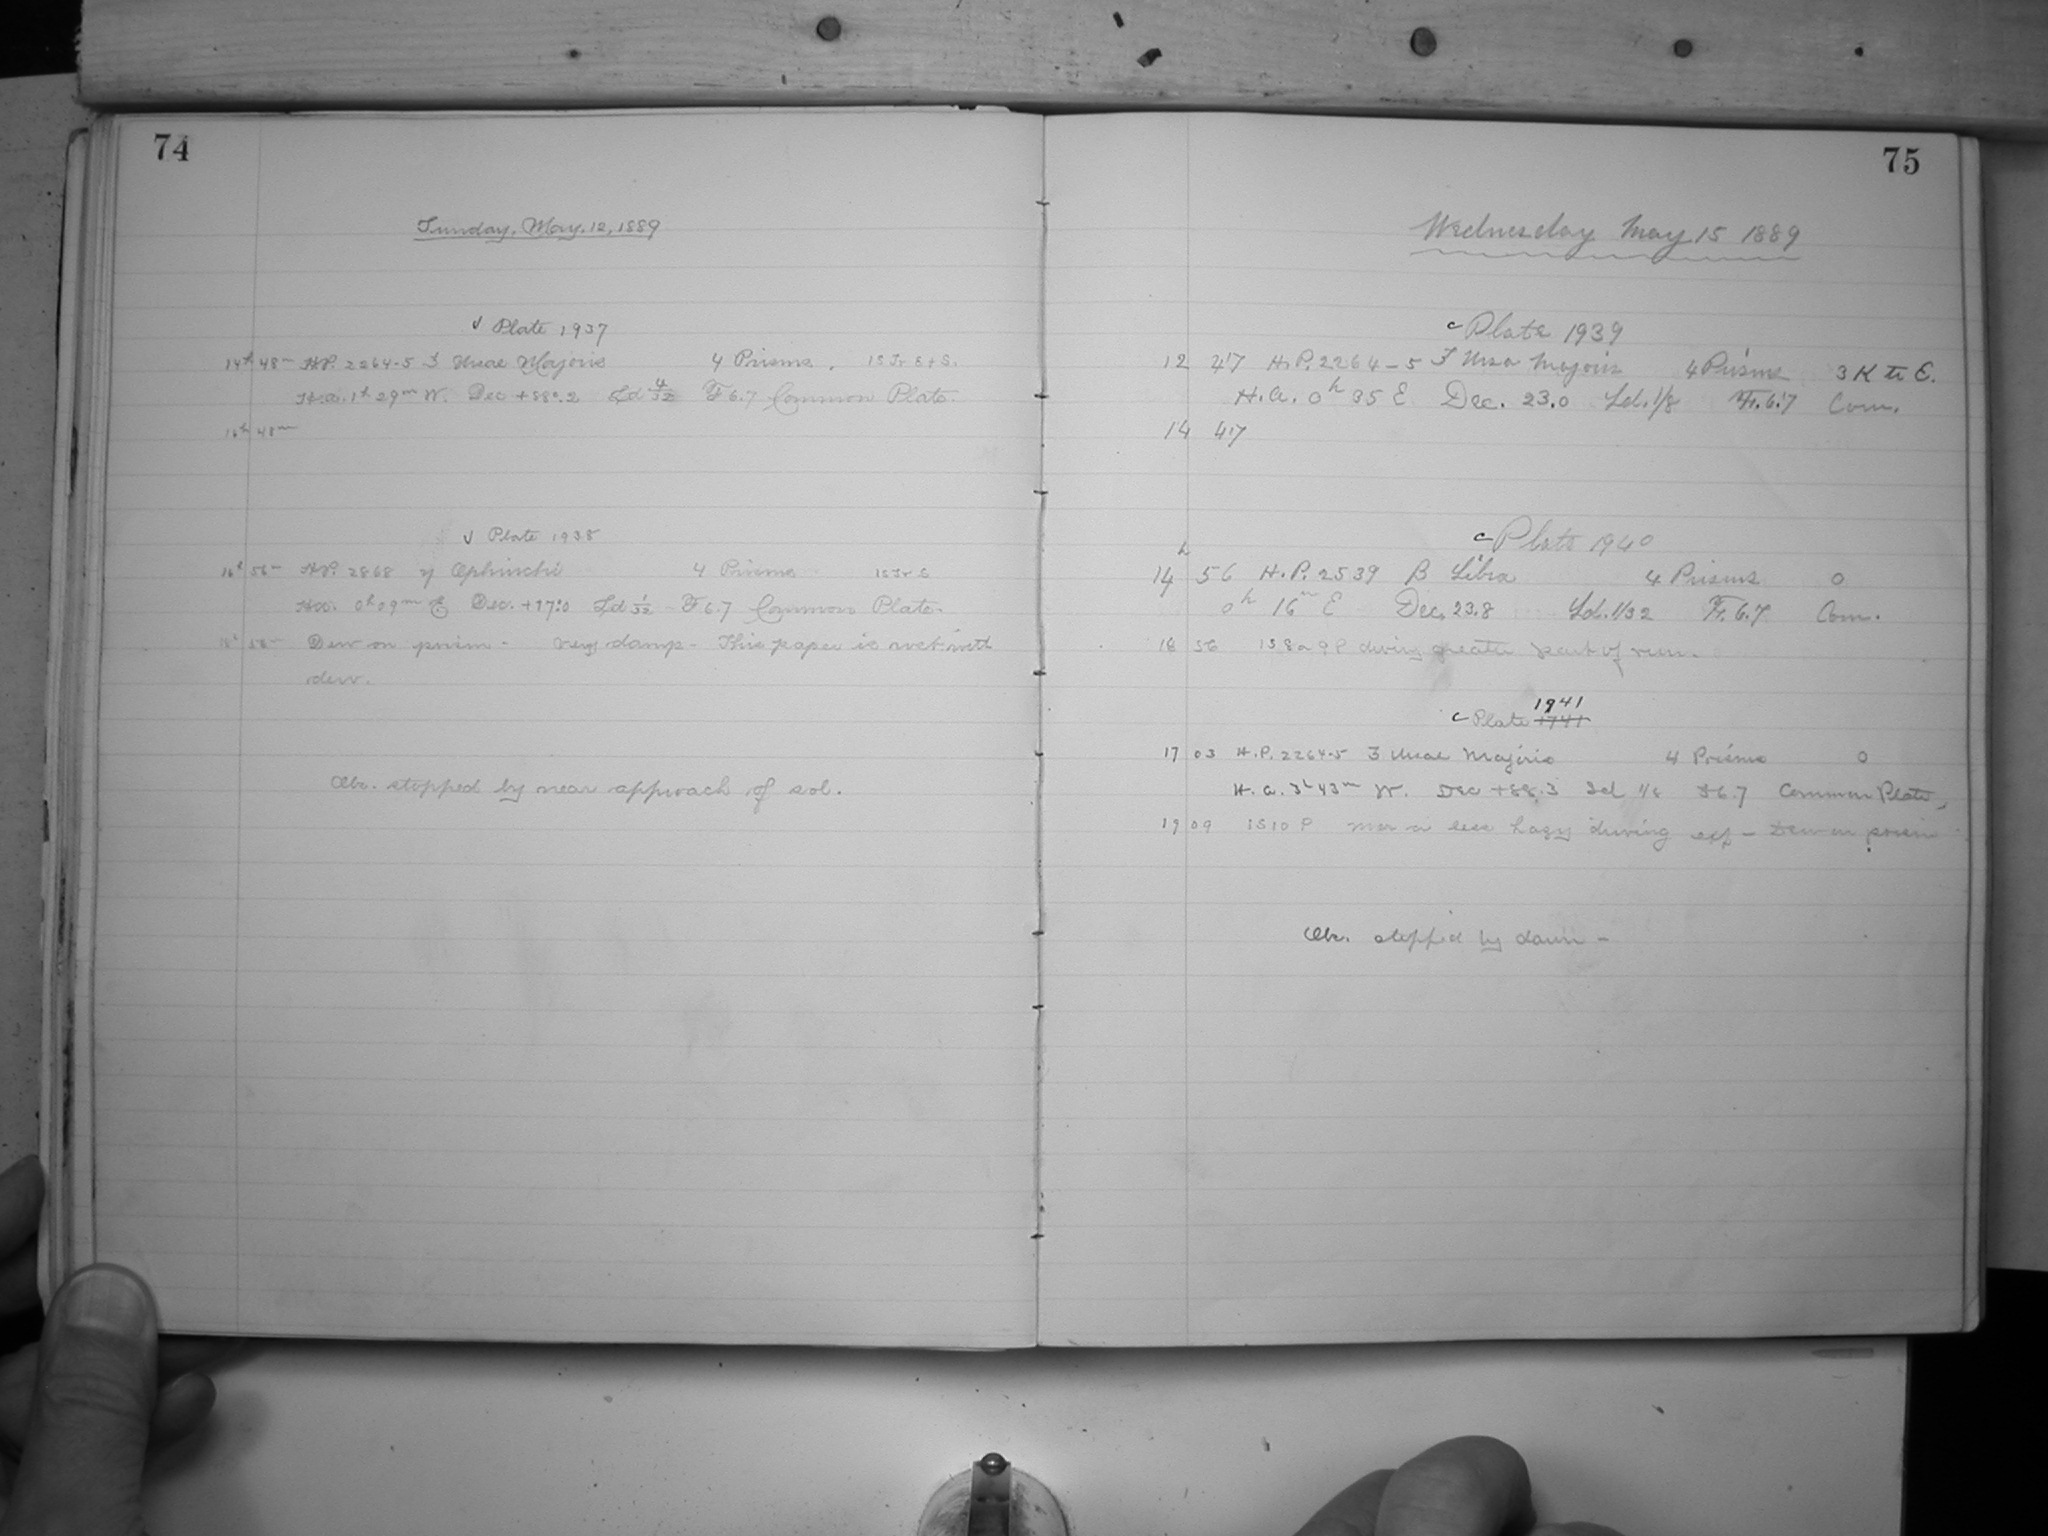 74
Sunday, May, 12, 1889
√ Plate 1937
14h 48m H.P. 2264-5 ζ Ursae Majoris 4 Prisms. E + S.
H.a. 1h 29m W. Dec +88°.2 Ld F 6.7 Common Plate.
16h 48m
√ Plate 1938
16h 56m H.P. 2868 η Ophiuchi 4 Prisms
H.a. 0h 09m E Dec. +17°.0 Ld 1/32 F 6.7 Common Plate.
18h 58m Dew on prism - very damp - This paper is wet with
dew.
Obs. stopped by near approach of sol.
75
Wednesday May 15 1889
c Plate 1939
12 47 H.P. 2264-5 ζ Ursa Majoris 4 Prisms 3 K to E.
H.a. 0h 35 E Dec. 23.0 Ld. 1/8 Fr. 6.7 Com.
14 47
h
c Plate 1940
14 56 H.P. 2539 β Libra 4 Prisms 0
0h 16m E Dec. 23.8 Ld. 1/32 Fr. 6.7 Com.
16 56 during greater part of run.
1941
c Plate 1741
17 03 H.P. 2264-5 ζ Ursae Majoris 4 Prisms 0
H.a. 3h 43m W. Dec +88.3 Ld 1/8 F 6.7 Common Plate,
19 09 1S 10 P more or less hazy during exp - Dew on prism
Obs. stopped by dawn -